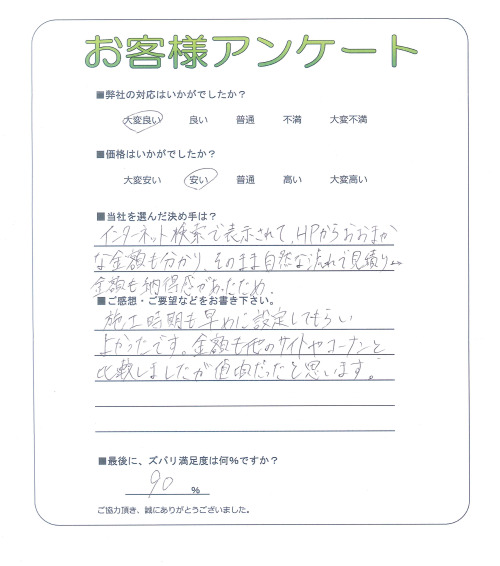 お客様アンケート
■弊社の対応はいかがでしたか？
大変良い 良い 普通 不満 大変不満
■価格はいかがでしたか？
大変安い 安い 普通 高い 大変高い
■当社を選んだ決め手は？
インターネット検索で表示されて、HPからおおまか
な金額も分かり、そのまま自然な流れで見積り
金額も納得感があったため。
■ご感想・ご要望などをお書き下さい。
施工時期も早めに設定してもらい
上かったです。金額も他のサイトやコーナンと
比較しましたが値頃だったと思います。
■最後に、ズバリ満足度は何％ですか？
90 ％
ご協力頂き、誠にありがとうございました。